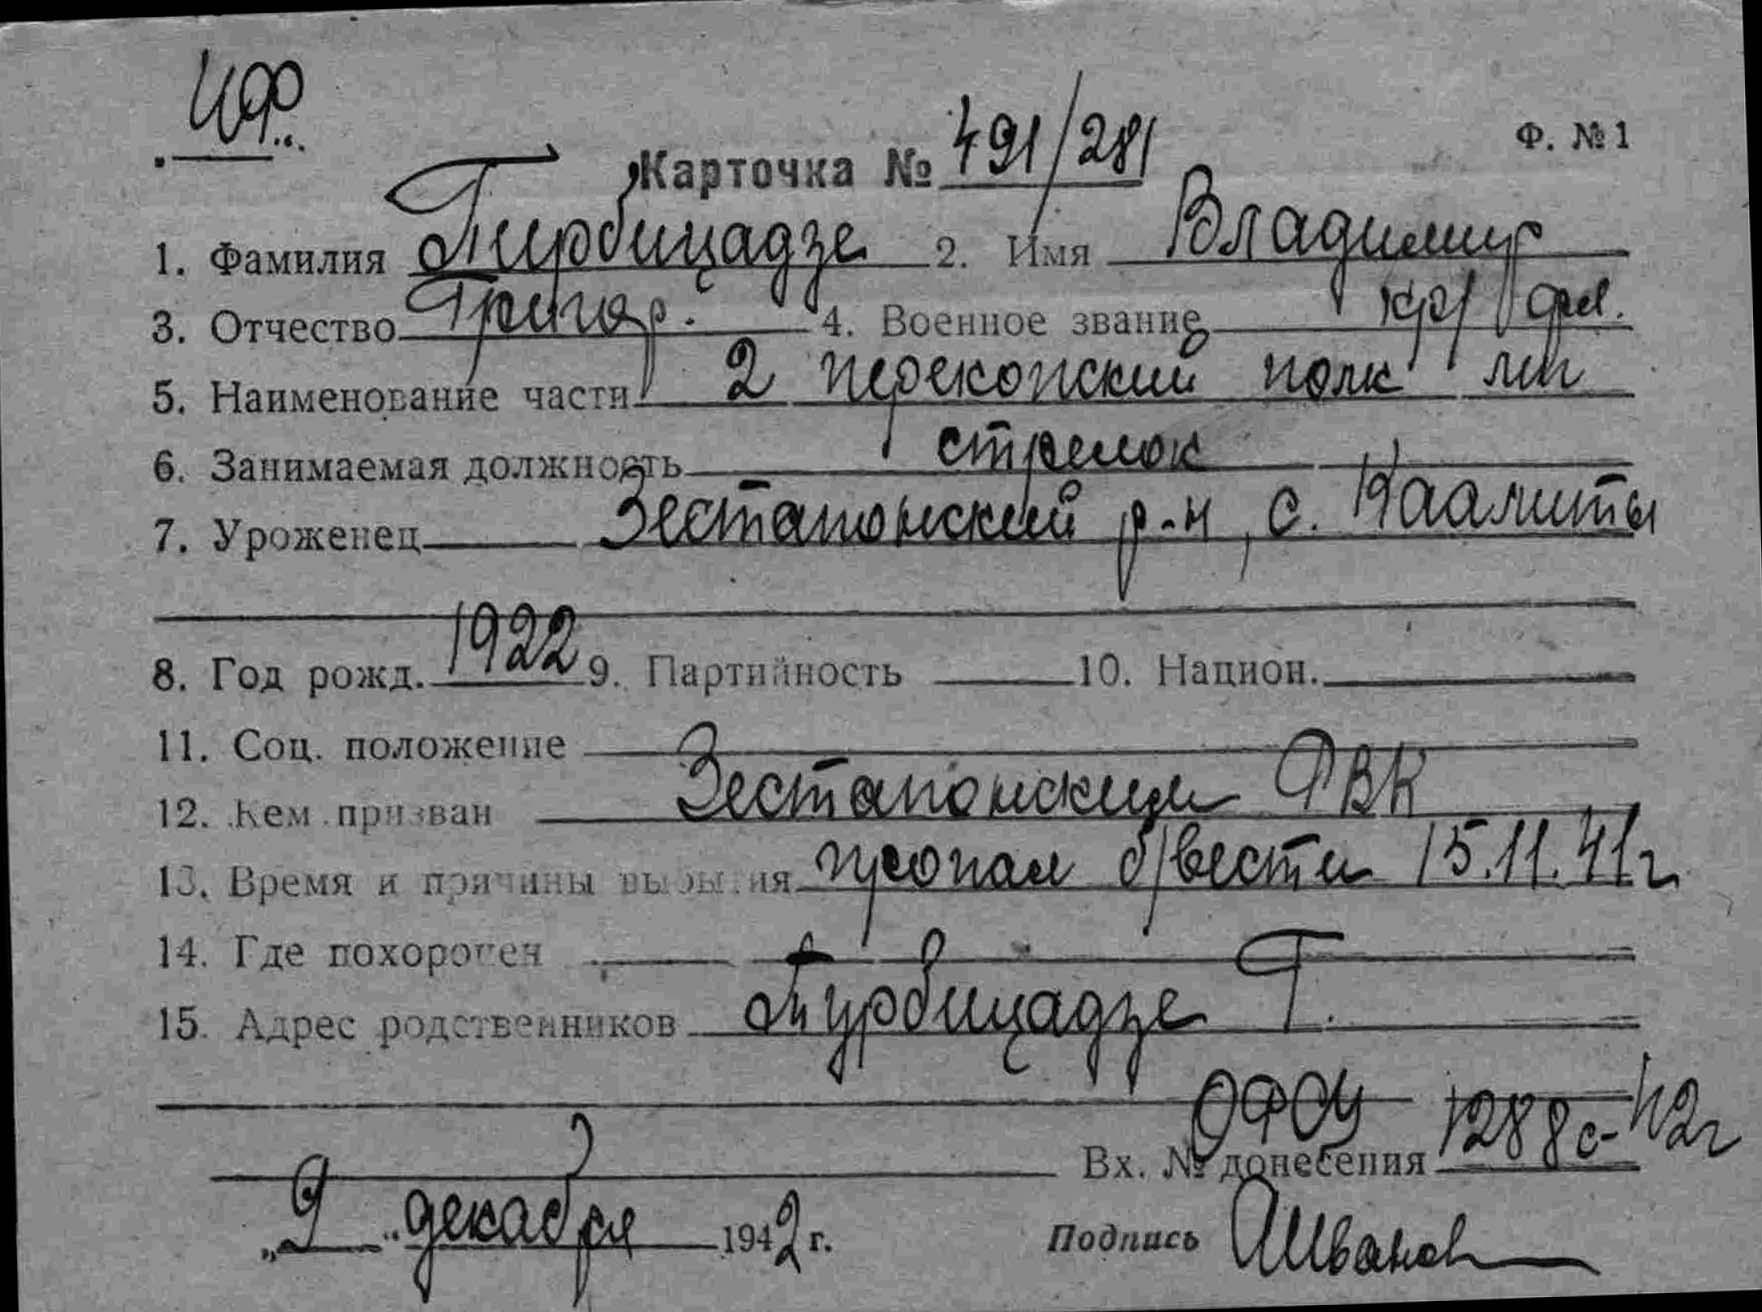 Ф. № 1
Карточка № 491/281
1. Фамилия Турбицадзе 2. Имя Владимир
3. Отчество Григор. 4. Военное звание кр/фл.
5. Наименование части 2 перекопский полк мп
6. Занимаемая должность стрелок
7. Уроженец Зестапонский р-н, с. Каалиты
8. Год рожд. 1922 9. Партийность 10. Национ.
11. Соц. положение
12. Кем призван Зестапонским РВК
13. Время и причины выбытия пропал б/вести 15.11.41г
14. Где похоронен
15. Адрес родственников Турбицадзе Г.
Вх. № донесения 1288с-42г
„9" декабря 1942 г. Подпись АИванов